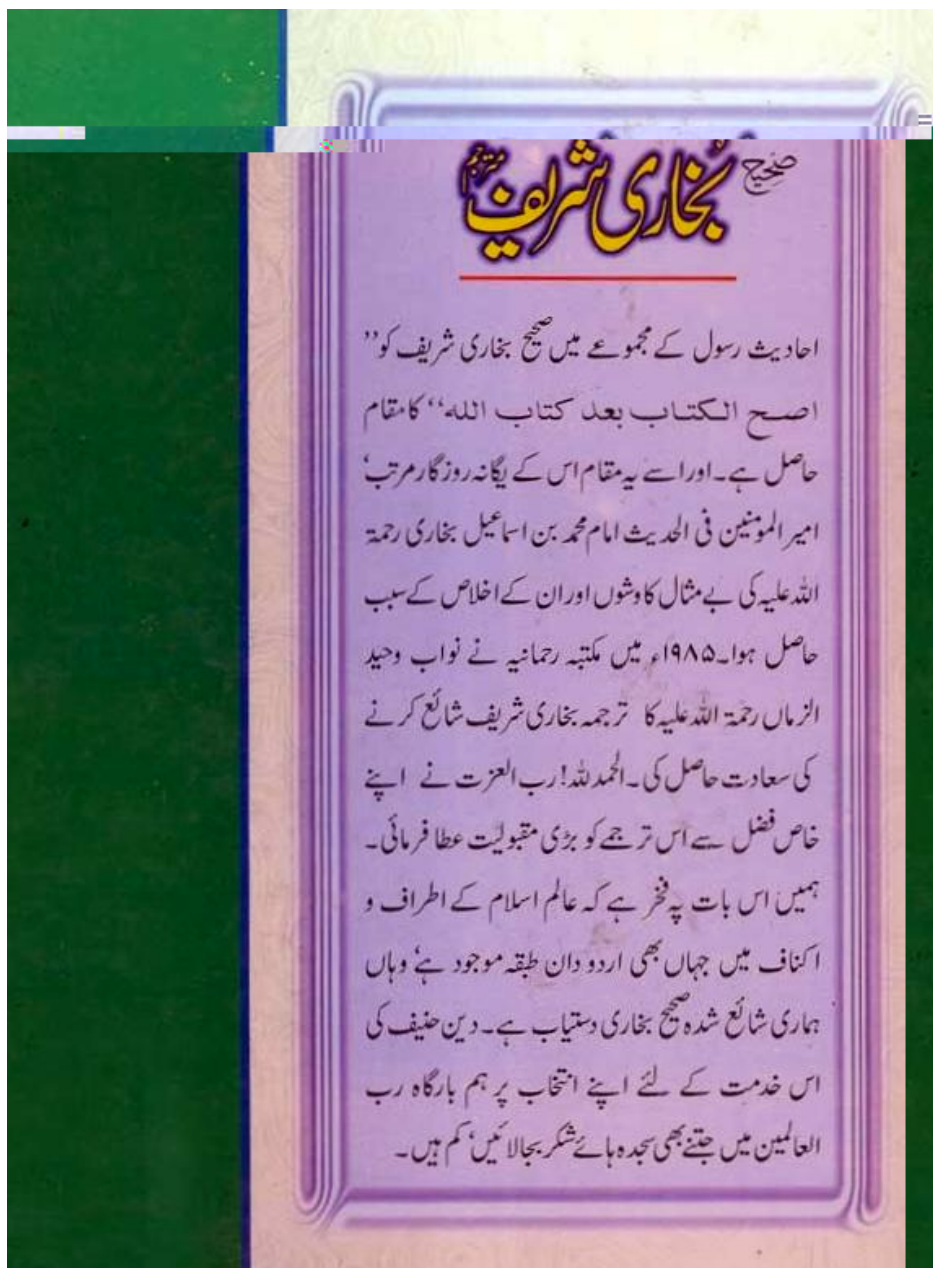 صحیح بخاری شریف مترجم
احادیث رسول کے مجموعے میں صحیح بخاری شریف کو ’’
اصح الکتاب بعد کتاب اللہ‘‘ کا مقام
حاصل ہے۔ اور اسے یہ مقام اس کے یگانہ روزگار مرتب‘
امیر المومنین فی الحدیث امام محمد بن اسماعیل بخاری رحمۃ
اللہ علیہ کی بے مثال کاوشوں اور ان کے اخلاص کے سبب
حاصل ہوا۔ ۱۹۸۵ء میں مکتبہ رحمانیہ نے نواب وحید
الزماں رحمۃ اللہ علیہ کا ترجمہ بخاری شریف شائع کرنے
کی سعادت حاصل کی۔ الحمدللہ! رب العزت نے اپنے
خاص فضل سے اس ترجمے کو بڑی مقبولیت عطا فرمائی۔
ہمیں اس بات پہ فخر ہے کہ عالم اسلام کے اطراف و
اکناف میں جہاں بھی اردو دان طبقہ موجود ہے‘ وہاں
ہماری شائع شدہ صحیح بخاری دستیاب ہے۔ دین حنیف کی
اس خدمت کے لئے اپنے انتخاب پر ہم بارگاہ رب
العالمین میں جتنے بھی سجدہ ہائے شکر بجالائیں‘ کم ہیں۔